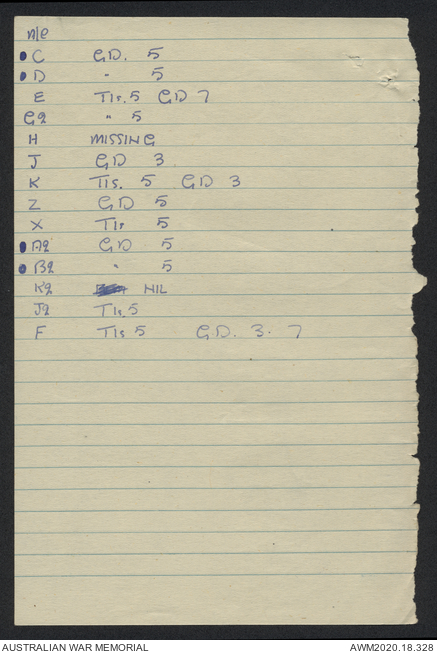 n/e
• C GD. 5
• D " 5
E TIs. 5 GD 7
G2 " 5
H MISSING
J GD 3.
K TIs. 5 GD 3
Z GD 5
X TIs 5
• A2 GD 5
• B2 " 5
K2 NIL
J2 TIs. 5
F TIs 5 GD. 3. 7
AUSTRALIAN WAR MEMORIAL AWM2020.18.328